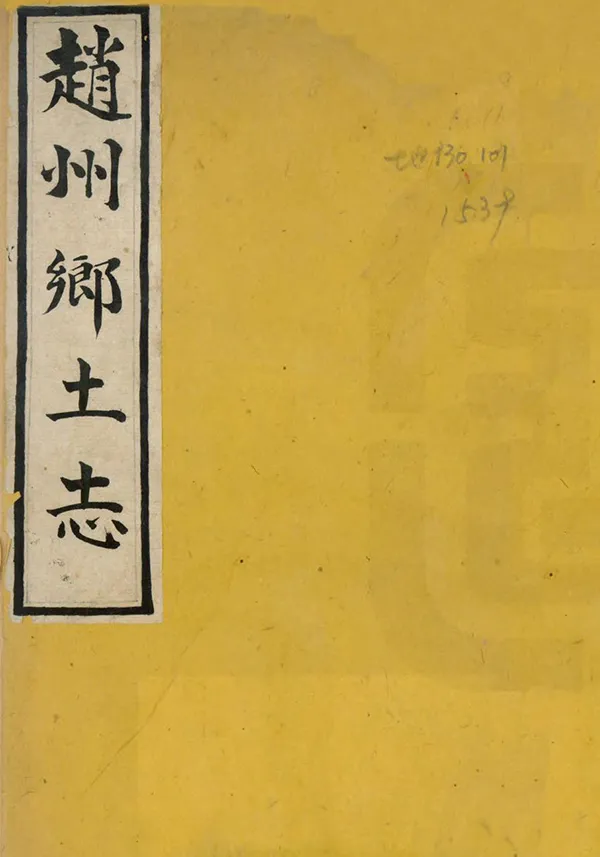 趙州鄉土志
地130.101
1539